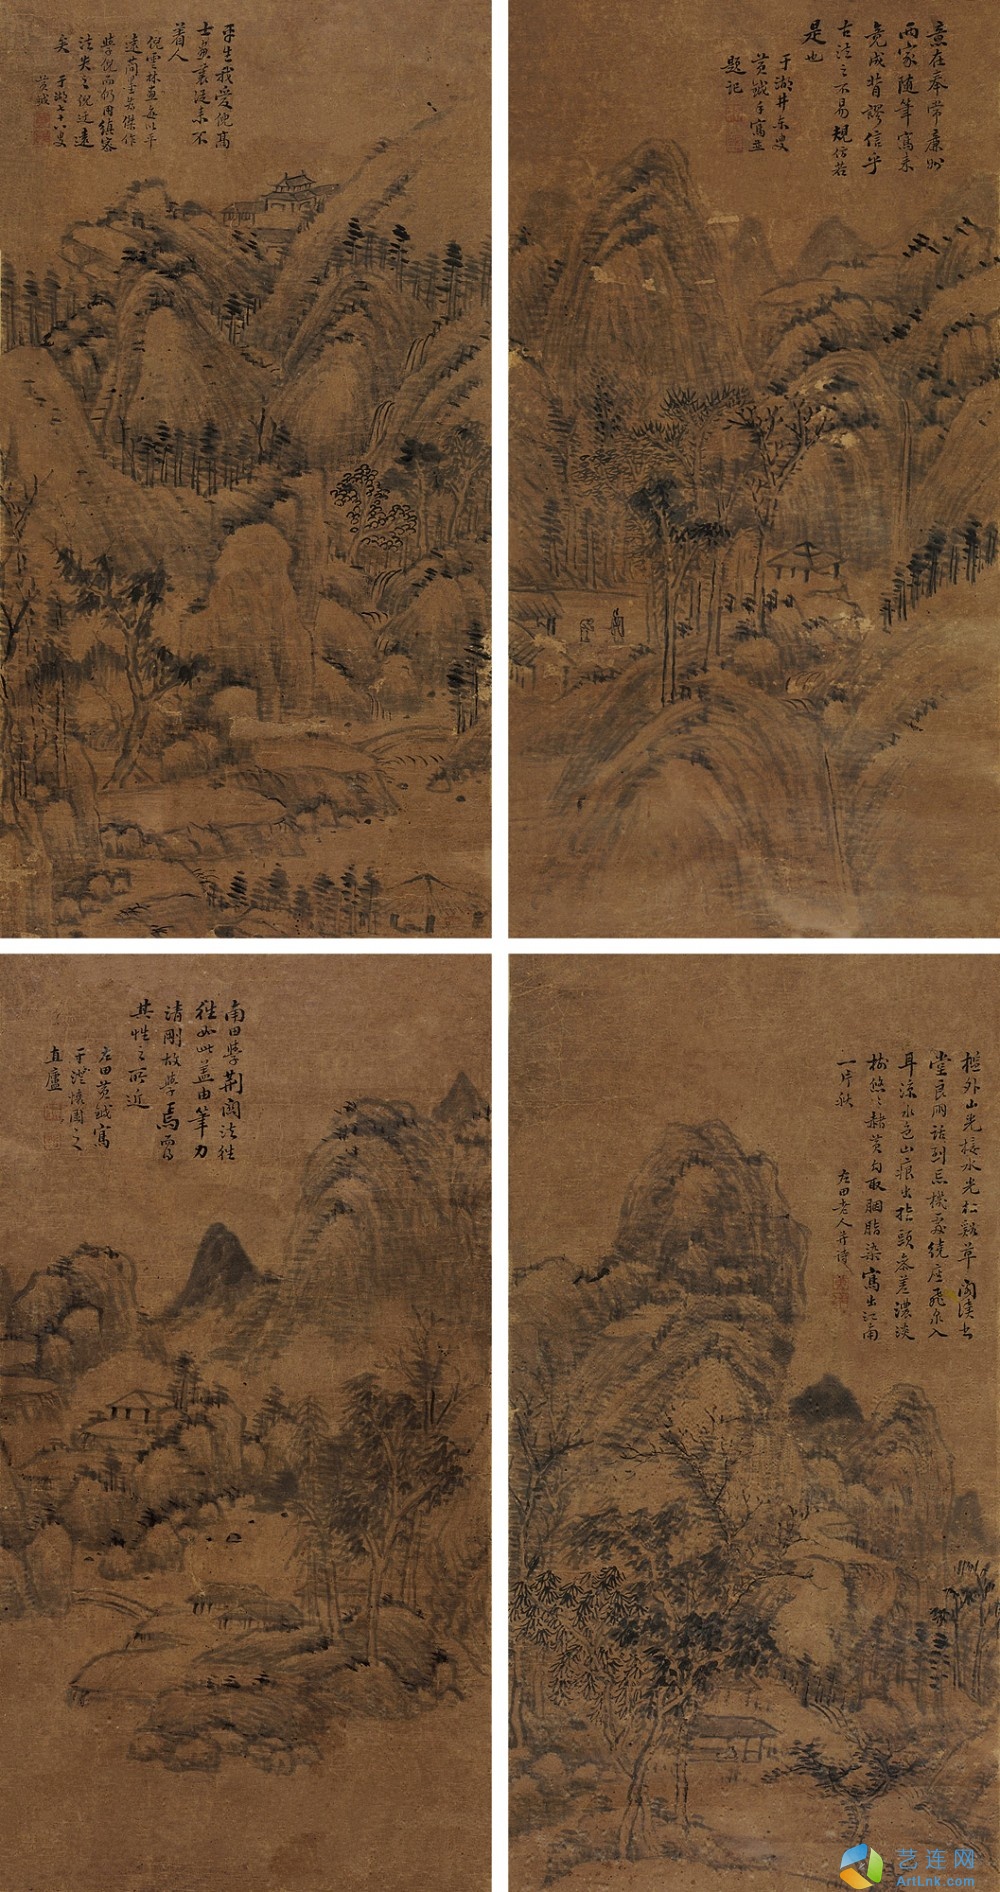 平生我爱倪高
士画里从来不
着人
倪云林画每以平
远简墨为杰作
学倪而仍用缜密
法失之倪迂远
矣 于湖七十八叟
黄钺
意在奉常廉州
两家随笔写来
竟成背谬信乎
古法之不易规仿若
是也
于湖井东叟
黄钺手写并
题记
南田学荆関法往
往如此盖由笔力
清刚故学焉而得
其性之所近
左田黄钺写
于澄怀园之
直庐
槛外山光接水光松谿草阁
堂良雨话到忘机处绕座飞泉入
耳凉水色山痕出指头参差浓淡
树悠々赭黄勾取胭脂染写出江南
一片秋
左田老人并诗
艺连网
ArtLnk.com